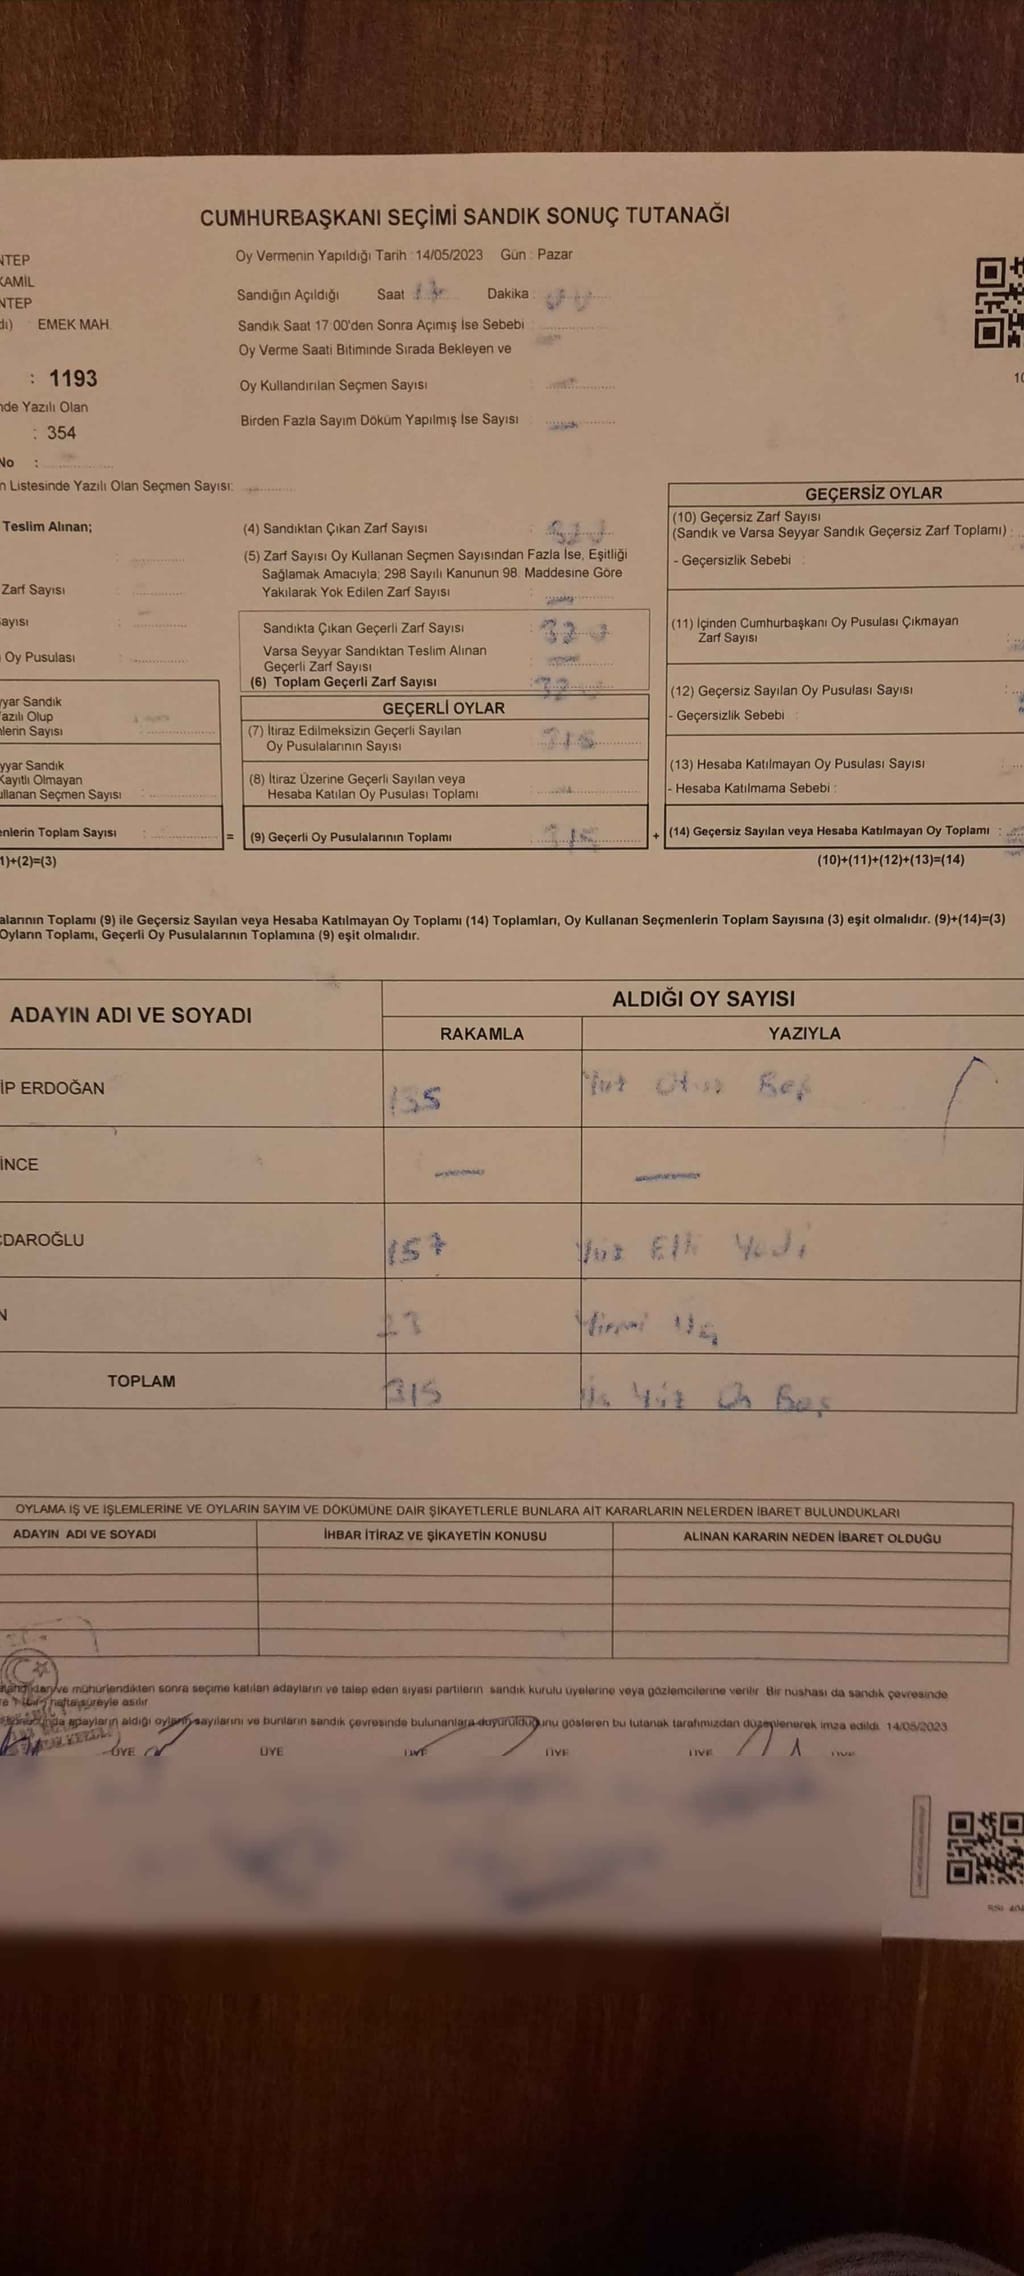 CUMHURBAŞKANI SEÇİMİ SANDIK SONUÇ TUTANAĞI
NTEP
KAMİL
NTEP
dı) : EMEK MAH.
: 1193
nde Yazılı Olan
: 354
No :
n Listesinde Yazılı Olan Seçmen Sayısı:
Oy Vermenin Yapıldığı Tarih : 14/05/2023 Gün : Pazar
Sandığın Açıldığı Saat Dakika
Sandık Saat 17:00'den Sonra Açımış İse Sebebi
Oy Verme Saati Bitiminde Sırada Bekleyen ve
Oy Kullandırılan Seçmen Sayısı
Birden Fazla Sayım Döküm Yapılmış İse Sayısı
Teslim Alınan;
Zarf Sayısı
ayısı
Oy Pusulası
yyar Sandık
azılı Olup
nlerin Sayısı
yyar Sandık
Kayıtlı Olmayan
ullanan Seçmen Sayısı
enlerin Toplam Sayısı =
1)+(2)=(3)
(4) Sandıktan Çıkan Zarf Sayısı :
(5) Zarf Sayısı Oy Kullanan Seçmen Sayısından Fazla İse, Eşitliği
Sağlamak Amacıyla; 298 Sayılı Kanunun 98. Maddesine Göre
Yakılarak Yok Edilen Zarf Sayısı
Sandıkta Çıkan Geçerli Zarf Sayısı
Varsa Seyyar Sandıktan Teslim Alınan
Geçerli Zarf Sayısı
(6) Toplam Geçerli Zarf Sayısı
GEÇERLİ OYLAR
(7) İtiraz Edilmeksizin Geçerli Sayılan
Oy Pusulalarının Sayısı 315
(8) İtiraz Üzerine Geçerli Sayılan veya
Hesaba Katılan Oy Pusulası Toplamı
(9) Geçerli Oy Pusulalarının Toplamı 315 +
GEÇERSİZ OYLAR
(10) Geçersiz Zarf Sayısı
(Sandık ve Varsa Seyyar Sandık Geçersiz Zarf Toplamı) :
- Geçersizlik Sebebi :
(11) İçinden Cumhurbaşkanı Oy Pusulası Çıkmayan
Zarf Sayısı
(12) Geçersiz Sayılan Oy Pusulası Sayısı :
- Geçersizlik Sebebi :
(13) Hesaba Katılmayan Oy Pusulası Sayısı :
- Hesaba Katılmama Sebebi :
(14) Geçersiz Sayılan veya Hesaba Katılmayan Oy Toplamı :
(10)+(11)+(12)+(13)=(14)
alarının Toplamı (9) ile Geçersiz Sayılan veya Hesaba Katılmayan Oy Toplamı (14) Toplamları, Oy Kullanan Seçmenlerin Toplam Sayısına (3) eşit olmalıdır. (9)+(14)=(3)
Oyların Toplamı, Geçerli Oy Pusulalarının Toplamına (9) eşit olmalıdır.
ADAYIN ADI VE SOYADI
ALDIĞI OY SAYISI
RAKAMLA YAZIYLA
İP ERDOĞAN 135 Yüz Otuz Beş
İNCE — —
CDAROĞLU 157 Yüz Elli Yedi
N 23 Yirmi Üç
TOPLAM 315 Üç Yüz On Beş
OYLAMA İŞ VE İŞLEMLERİNE VE OYLARIN SAYIM VE DÖKÜMÜNE DAİR ŞİKAYETLERLE BUNLARA AİT KARARLARIN NELERDEN İBARET BULUNDUKLARI
ADAYIN ADI VE SOYADI İHBAR İTİRAZ VE ŞİKAYETİN KONUSU ALINAN KARARIN NEDEN İBARET OLDUĞU
ve mühürlendikten sonra seçime katılan adayların ve talep eden siyasi partilerin sandık kurulu üyelerine veya gözlemcilerine verilir. Bir nüshası da sandık çevresinde
hafta süreyle asılır
adayların aldığı oyların sayılarını ve bunların sandık çevresinde bulunanlara duyurulduğunu gösteren bu tutanak tarafımızdan düzenlenerek imza edildi. 14/05/2023
ÜYE ÜYE ÜYE ÜYE ÜYE ÜYE